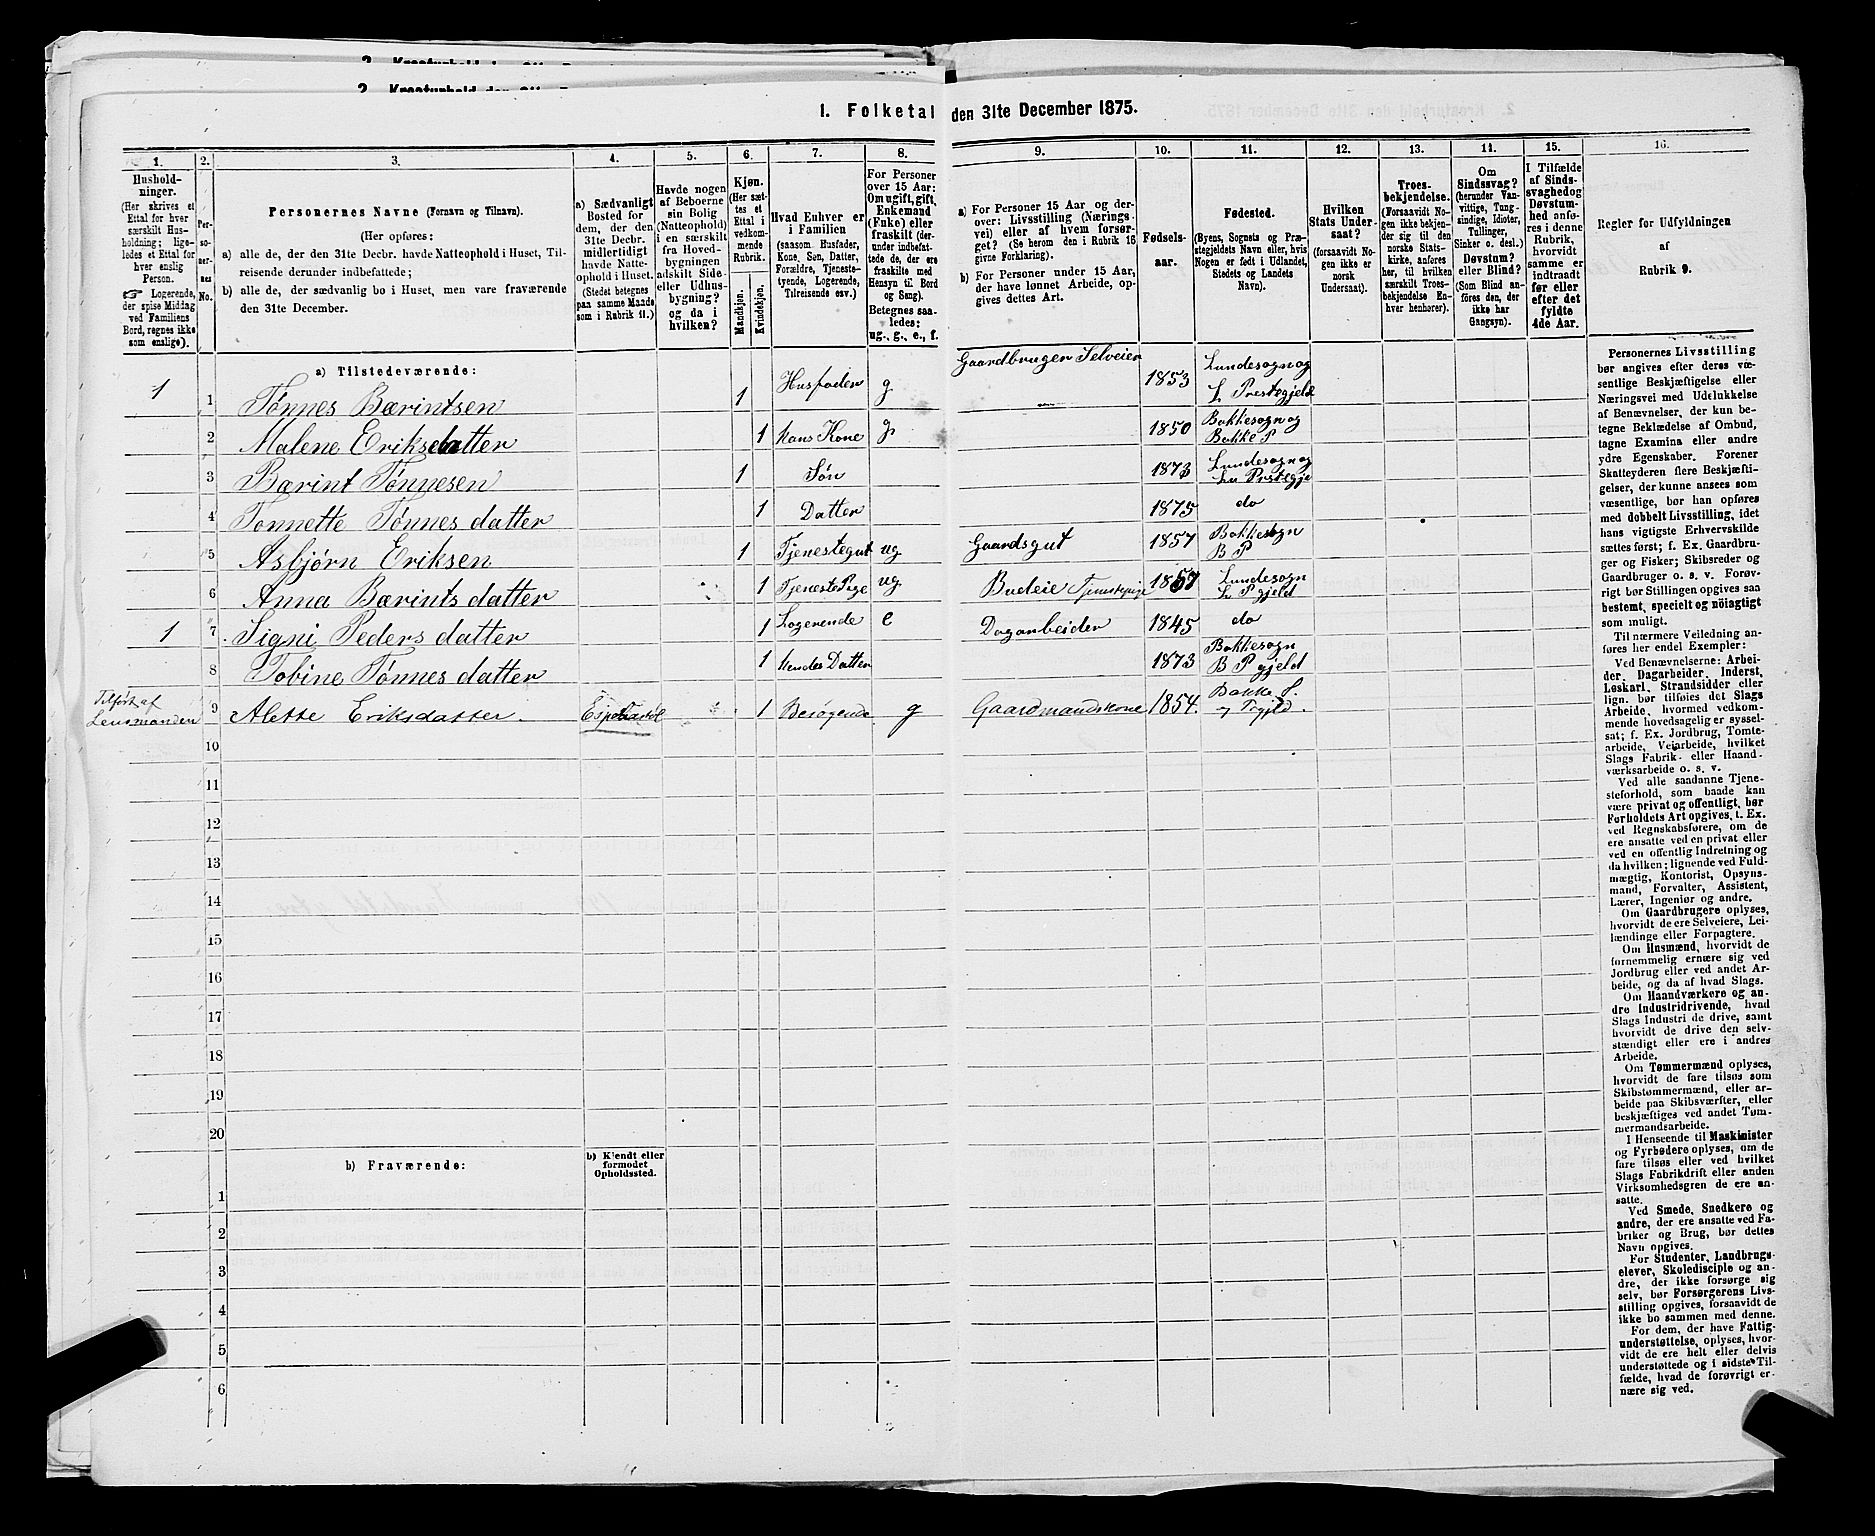 1. Folketal den 31te December 1875.
1. 2. 3. 4. 5. 6. 7. 8. 9. 10. 11. 12. 13. 14. 15. 16.
Hushold-
ninger.
(Her skrives et
Ettal for hver
særskilt Hus-
holdning; lige-
ledes et Ettal for
hver enslig
Person.
☞ Logerende,
der spise Middag
ved Familiens
Bord, regnes ikke
som enslige).
Per-
so-
ner-
nes
No.
Personernes Navne (Fornavn og Tilnavn).
(Her opføres:
a) alle de, der den 31te Decbr. havde Natteophold i Huset, Til-
reisende derunder indbefattede;
b) alle de, der sædvanlig bo i Huset, men vare fraværende
den 31te December.
a) Sædvanligt
Bosted for
dem, der den
31te Decbr.
midlertidigt
havde Natte-
ophold i Huset.
(Stedet betegnes
paa samme Maade
som i Rubrik 11.)
Havde nogen
af Beboerne
sin Bolig
(Natteophold)
i en særskilt
fra Hoved-
bygningen
adskilt Side-
eller Udhus-
bygning?
og da i
hvilken?
Kjøn.
(Her sæt-
tes et
Ettal i
vedkom-
mende
Rubrik.
Mandkjøn.
Kvindekjøn.
Hvad Enhver er
i Familien
(saasom Husfader,
Kone, Søn, Datter,
Forældre, Tjeneste-
tyende, Logerende,
Tilreisende osv.)
For Personer
over 15 Aar:
Om ugift, gift,
Enkemand
(Enke) eller
fraskilt (der-
under indbefat-
tede de, der ere
fraskilte med
Hensyn til Bord
og Seng).
Betegnes saa-
ledes:
ug., g., e., f.
a) For Personer 15 Aar og der-
over: Livsstilling (Nærings-
vei) eller af hvem forsør-
get? (Se herom den i Rubrik 16
givne Forklaring).
b) For Personer under 15 Aar,
der have lønnet Arbeide, op-
gives dettes Art.
Fødsels-
aar.
Fødested.
(Byens, Sognets og Præ-
stegjeldets Navn eller, hvis
Nogen er født i Udlandet,
Stedets og Landets
Navn).
Hvilken
Stats Under-
saat?
(forsaavidt No-
gen ikke er
norsk
Undersaat).
Troes-
bekjendelse.
(Forsaavidt No-
gen ikke bekjen-
der sig til den
norske Stats-
kirke, anføres
her, til hvilken
særskilt Troes-
bekjendelse En-
hver henhører).
Om
Sindssvag?
(herunder Van-
vittige, Tung-
sindige, Idioter,
Tullinger,
Sinker o. desl.)
Døvstum?
eller Blind?
(Som Blind an-
føres den, der
ikke har
Gangsyn).
I Tilfælde
af Sinds-
svaghed og
Døvstum-
hed anfø-
res i denne
Rubrik,
hvorvidt
samme er
indtraadt
før eller
efter det
fyldte
4de Aar.
Regler for Udfyldningen
af
Rubrik 9.
a) Tilstedeværende:
1 1 Tønnes Bærintsen 1 Husfader g Gaardbruger Selveier 1853 Lundesogn og
L Prestegjeld
2 Malene Eriksdatter 1 Hans Kone g 1850 Bakkesogn og
Bakke P
3 Bærint Tønnesen 1 Søn 1873 Lundesogn og
Lu Prstegje
4 Tonnette Tønnes datter 1 Datter 1875 do
5 Asbjørn Eriksen 1 Tjenestegut ug Gaardsgut 1857 Bakkesogn
B P
6 Anna Bærints datter 1 TjenestePige ug Budeie Tjenestepige 1857 Lundesogn
L P gjeld
1 7 Signi Peders datter 1 Logerende e Dagarbeider 1845 do
8 Tobine Tønnes datter 1 Hendes Datter 1873 Bakkesogn
B P gjeld
Tilført af
Lensmanden 9 Alette Eriksdatter. 1 Besøgende g Gaardmandskone 1854. Bakke S.
og Prgjeld.
10
11
12
13
14
15
16
17
18
19
20
b) Fraværende:
b) Kjendt eller
formodet
Opholdssted.
1
2
3
4
5
6
Personernes Livsstilling
bør angives efter deres væ-
sentlige Beskjæftigelse eller
Næringsvei med Udelukkelse
af Benævnelser, der kun be-
tegne Beklædelse af Ombud,
tagne Examina eller andre
ydre Egenskaber. Forener
Skatteyderen flere Beskjæfti-
gelser, der kunne ansees som
væsentlige, bør han opføres
med dobbelt Livsstilling, idet
hans vigtigste Erhvervskilde
sættes først; f. Ex. Gaardbru-
ger og Fisker; Skibsreder og
Gaardbruger o. s. v. Forøv-
rigt bør Stillingen opgives saa
bestemt, specielt og nöiagtigt
som muligt.
Til nærmere Veiledning an-
føres her endel Exempler:
Ved Benævnelserne: Arbei-
der, Dagarbeider, Inderst,
Løskarl, Strandsidder eller
lign. bør tilføies det Slags
Arbeide, hvormed vedkom-
mende hovedsagelig er syssel-
sat; f. Ex. Jordbrug, Tomte-
arbeide, Veiarbeide, hvilket
Slags Fabrik- eller Haand-
værksarbeide o. s. v.
Ved alle saadanne Tjene-
steforhold, som baade kan
være privat og offentligt, bør
Forholdets Art opgives, t. Ex.
ved Regnskabsførere, om de
ere ansatte ved en privat eller
ved en offentlig Indretning og
da hvilken; lignende ved Fuld-
mægtig, Kontorist, Opsyns-
mand, Forvalter, Assistent,
Lærer, Ingeniør og andre.
Om Gaardbrugere oplyses,
hvorvidt de ere Selveiere, Lei-
lændinge eller Forpagtere.
Om Husmænd, hvorvidt de
fornemmelig ernære sig ved
Jordbrug eller ved andet Ar-
beide, og da af hvad Slags.
Om Haandværkere og an-
dre Industridrivende, hvad
Slags Industri de drive, samt
hvorvidt de drive den selv-
stændigt eller ere i andres
Arbeide.
Om Tømmermænd oplyses,
hvorvidt de fare tilsøs som
Skibstømmermænd, eller ar-
beide paa Skibsværfter, eller
beskjæftiges ved andet Tøm-
mermandsarbeide.
I Henseende til Maskinister
og Fyrbødere oplyses, om de
fare tilsøs eller ved hvilket
Slags Fabrikdrift eller anden
Virksomhedsgren de ere an-
satte.
Ved Smede, Snedkere og
andre, der ere ansatte ved Fa-
briker og Brug, bør dettes
Navn opgives.
For Studenter, Landbrugs-
elever, Skoledisciple og an-
dre, der ikke forsørge sig
selv, bør Forsørgerens Livs-
stilling opgives, forsaavidt de
ikke bo sammen med denne.
For dem, der have Fattig-
understøttelse, oplyses, hvor-
vidt de ere helt eller delvis
understøttede og i sidste Til-
fælde, hvad de forøvrigt er-
nære sig ved.